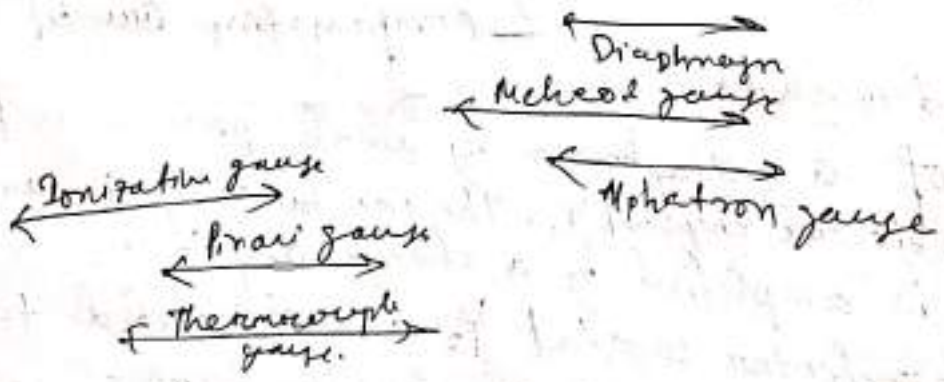 Diaphragm
McLeod gauge
Ionization gauge
Alphatron gauge
Pirani gauge
Thermocouple
gauge.